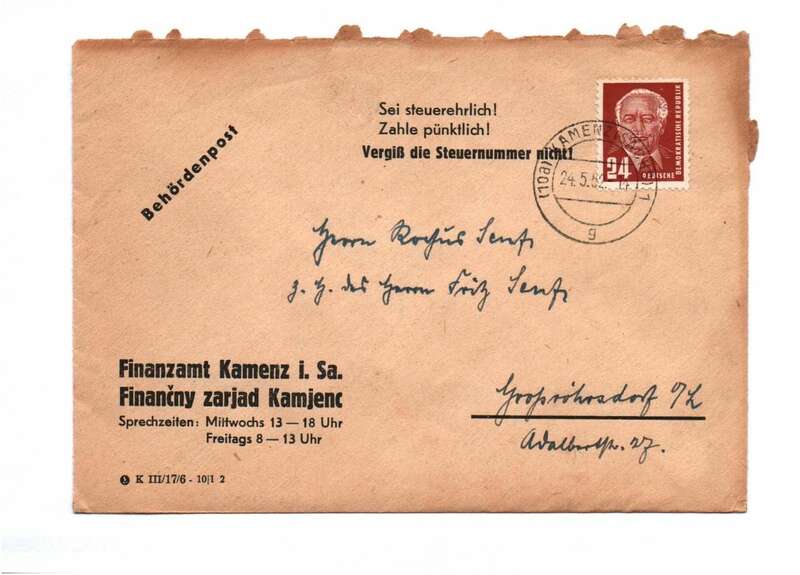 Sei steuerehrlich!
Zahle pünktlich!
Vergiß die Steuernummer nicht!
Behördenpost
24
DEUTSCHE DEMOKRATISCHE REPUBLIK
(10a) KAMENZ
24.5.52
g
Herrn Rochus Senf
z. H. des Herrn Fritz Senf
Großröhrsdorf o/L
Adalbertstr. 27.
Finanzamt Kamenz i. Sa.
Finančny zarjad Kamjenc
Sprechzeiten: Mittwochs 13 — 18 Uhr
Freitags 8 — 13 Uhr
K III/17/6 - 10|1 2